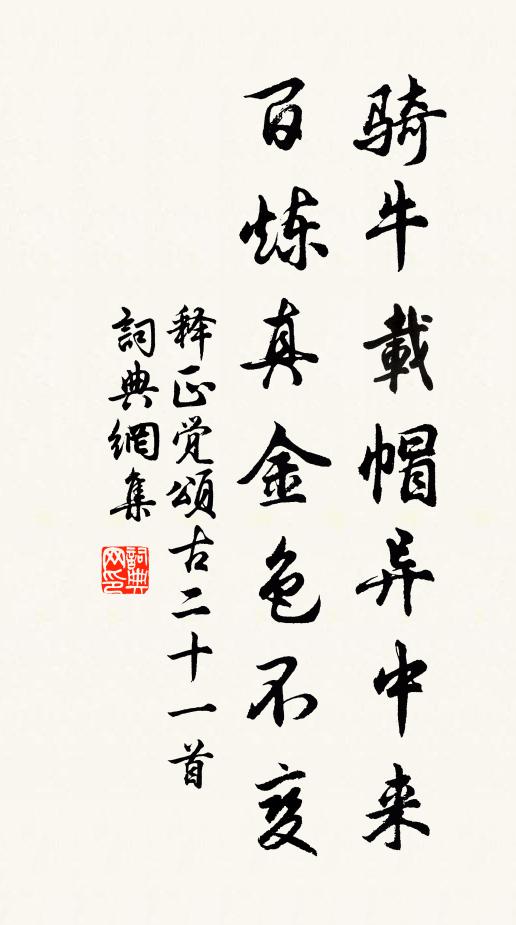 骑牛載帽异中来
百炼真金色不变
释正觉頌古二十一首
詞典網集
詞典网印